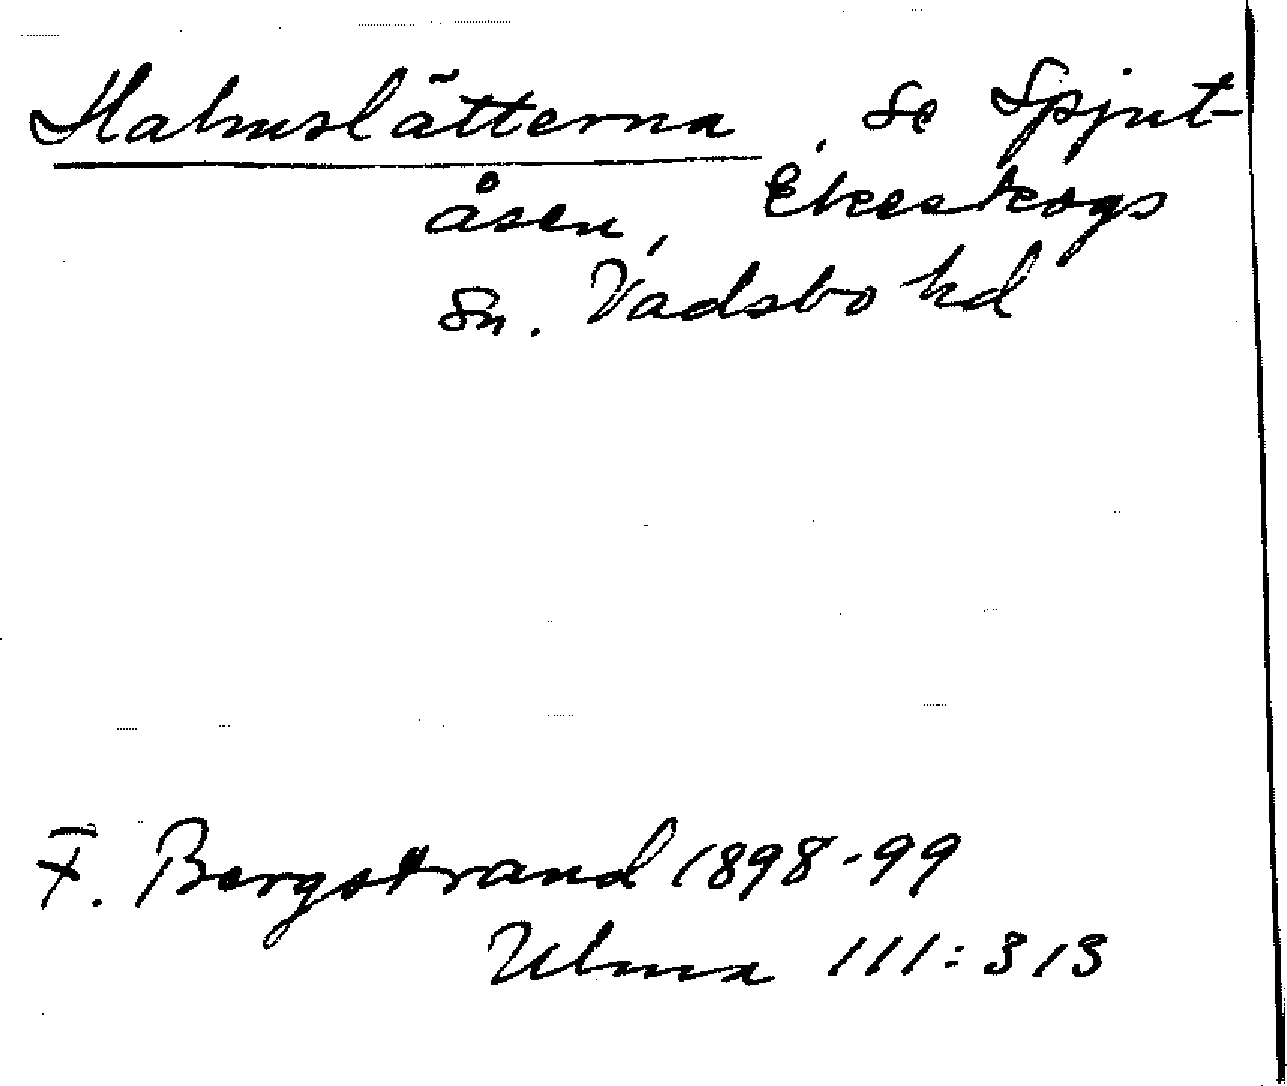 Halmslätterna, se Spjut-
åsen, Ekeskogs
sn. Vadsbo hd
F. Bergstrand 1898-99
Ulma 111:313